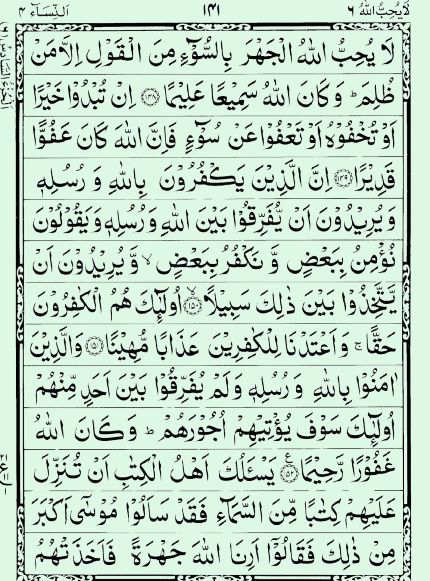 لَا يُحِبُّ اللهُ ٦ ١٤١ اَلنِّسَآء ٤
لَا يُحِبُّ اللهُ الْجَهْرَ بِالسُّوْٓءِ مِنَ الْقَوْلِ اِلَّا مَنْ
ظُلِمَ ؕ وَ كَانَ اللهُ سَمِيْعًا عَلِيْمًا ۝١٤٨ اِنْ تُبْدُوْا خَيْرًا
اَوْ تُخْفُوْهُ اَوْ تَعْفُوْا عَنْ سُوْٓءٍ فَاِنَّ اللهَ كَانَ عَفُوًّا
قَدِيْرًا ۝١٤٩ اِنَّ الَّذِيْنَ يَكْفُرُوْنَ بِاللهِ وَ رُسُلِهٖ
وَ يُرِيْدُوْنَ اَنْ يُّفَرِّقُوْا بَيْنَ اللهِ وَ رُسُلِهٖ وَ يَقُوْلُوْنَ
نُؤْمِنُ بِبَعْضٍ وَّ نَكْفُرُ بِبَعْضٍ ۙ وَّ يُرِيْدُوْنَ اَنْ
يَّتَّخِذُوْا بَيْنَ ذٰلِكَ سَبِيْلًا ۝١٥٠ۙ اُولٰٓئِكَ هُمُ الْكٰفِرُوْنَ
حَقًّا ۚ وَ اَعْتَدْنَا لِلْكٰفِرِيْنَ عَذَابًا مُّهِيْنًا ۝١٥١ وَالَّذِيْنَ
اٰمَنُوْا بِاللهِ وَ رُسُلِهٖ وَ لَمْ يُفَرِّقُوْا بَيْنَ اَحَدٍ مِّنْهُمْ
اُولٰٓئِكَ سَوْفَ يُؤْتِيْهِمْ اُجُوْرَهُمْ ؕ وَ كَانَ اللهُ
غَفُوْرًا رَّحِيْمًا ۝١٥٢ع يَسْـَٔلُكَ اَهْلُ الْكِتٰبِ اَنْ تُنَزِّلَ
عَلَيْهِمْ كِتٰبًا مِّنَ السَّمَآءِ فَقَدْ سَاَلُوْا مُوْسٰٓى اَكْبَرَ
مِنْ ذٰلِكَ فَقَالُوْٓا اَرِنَا اللهَ جَهْرَةً فَاَخَذَتْهُمُ